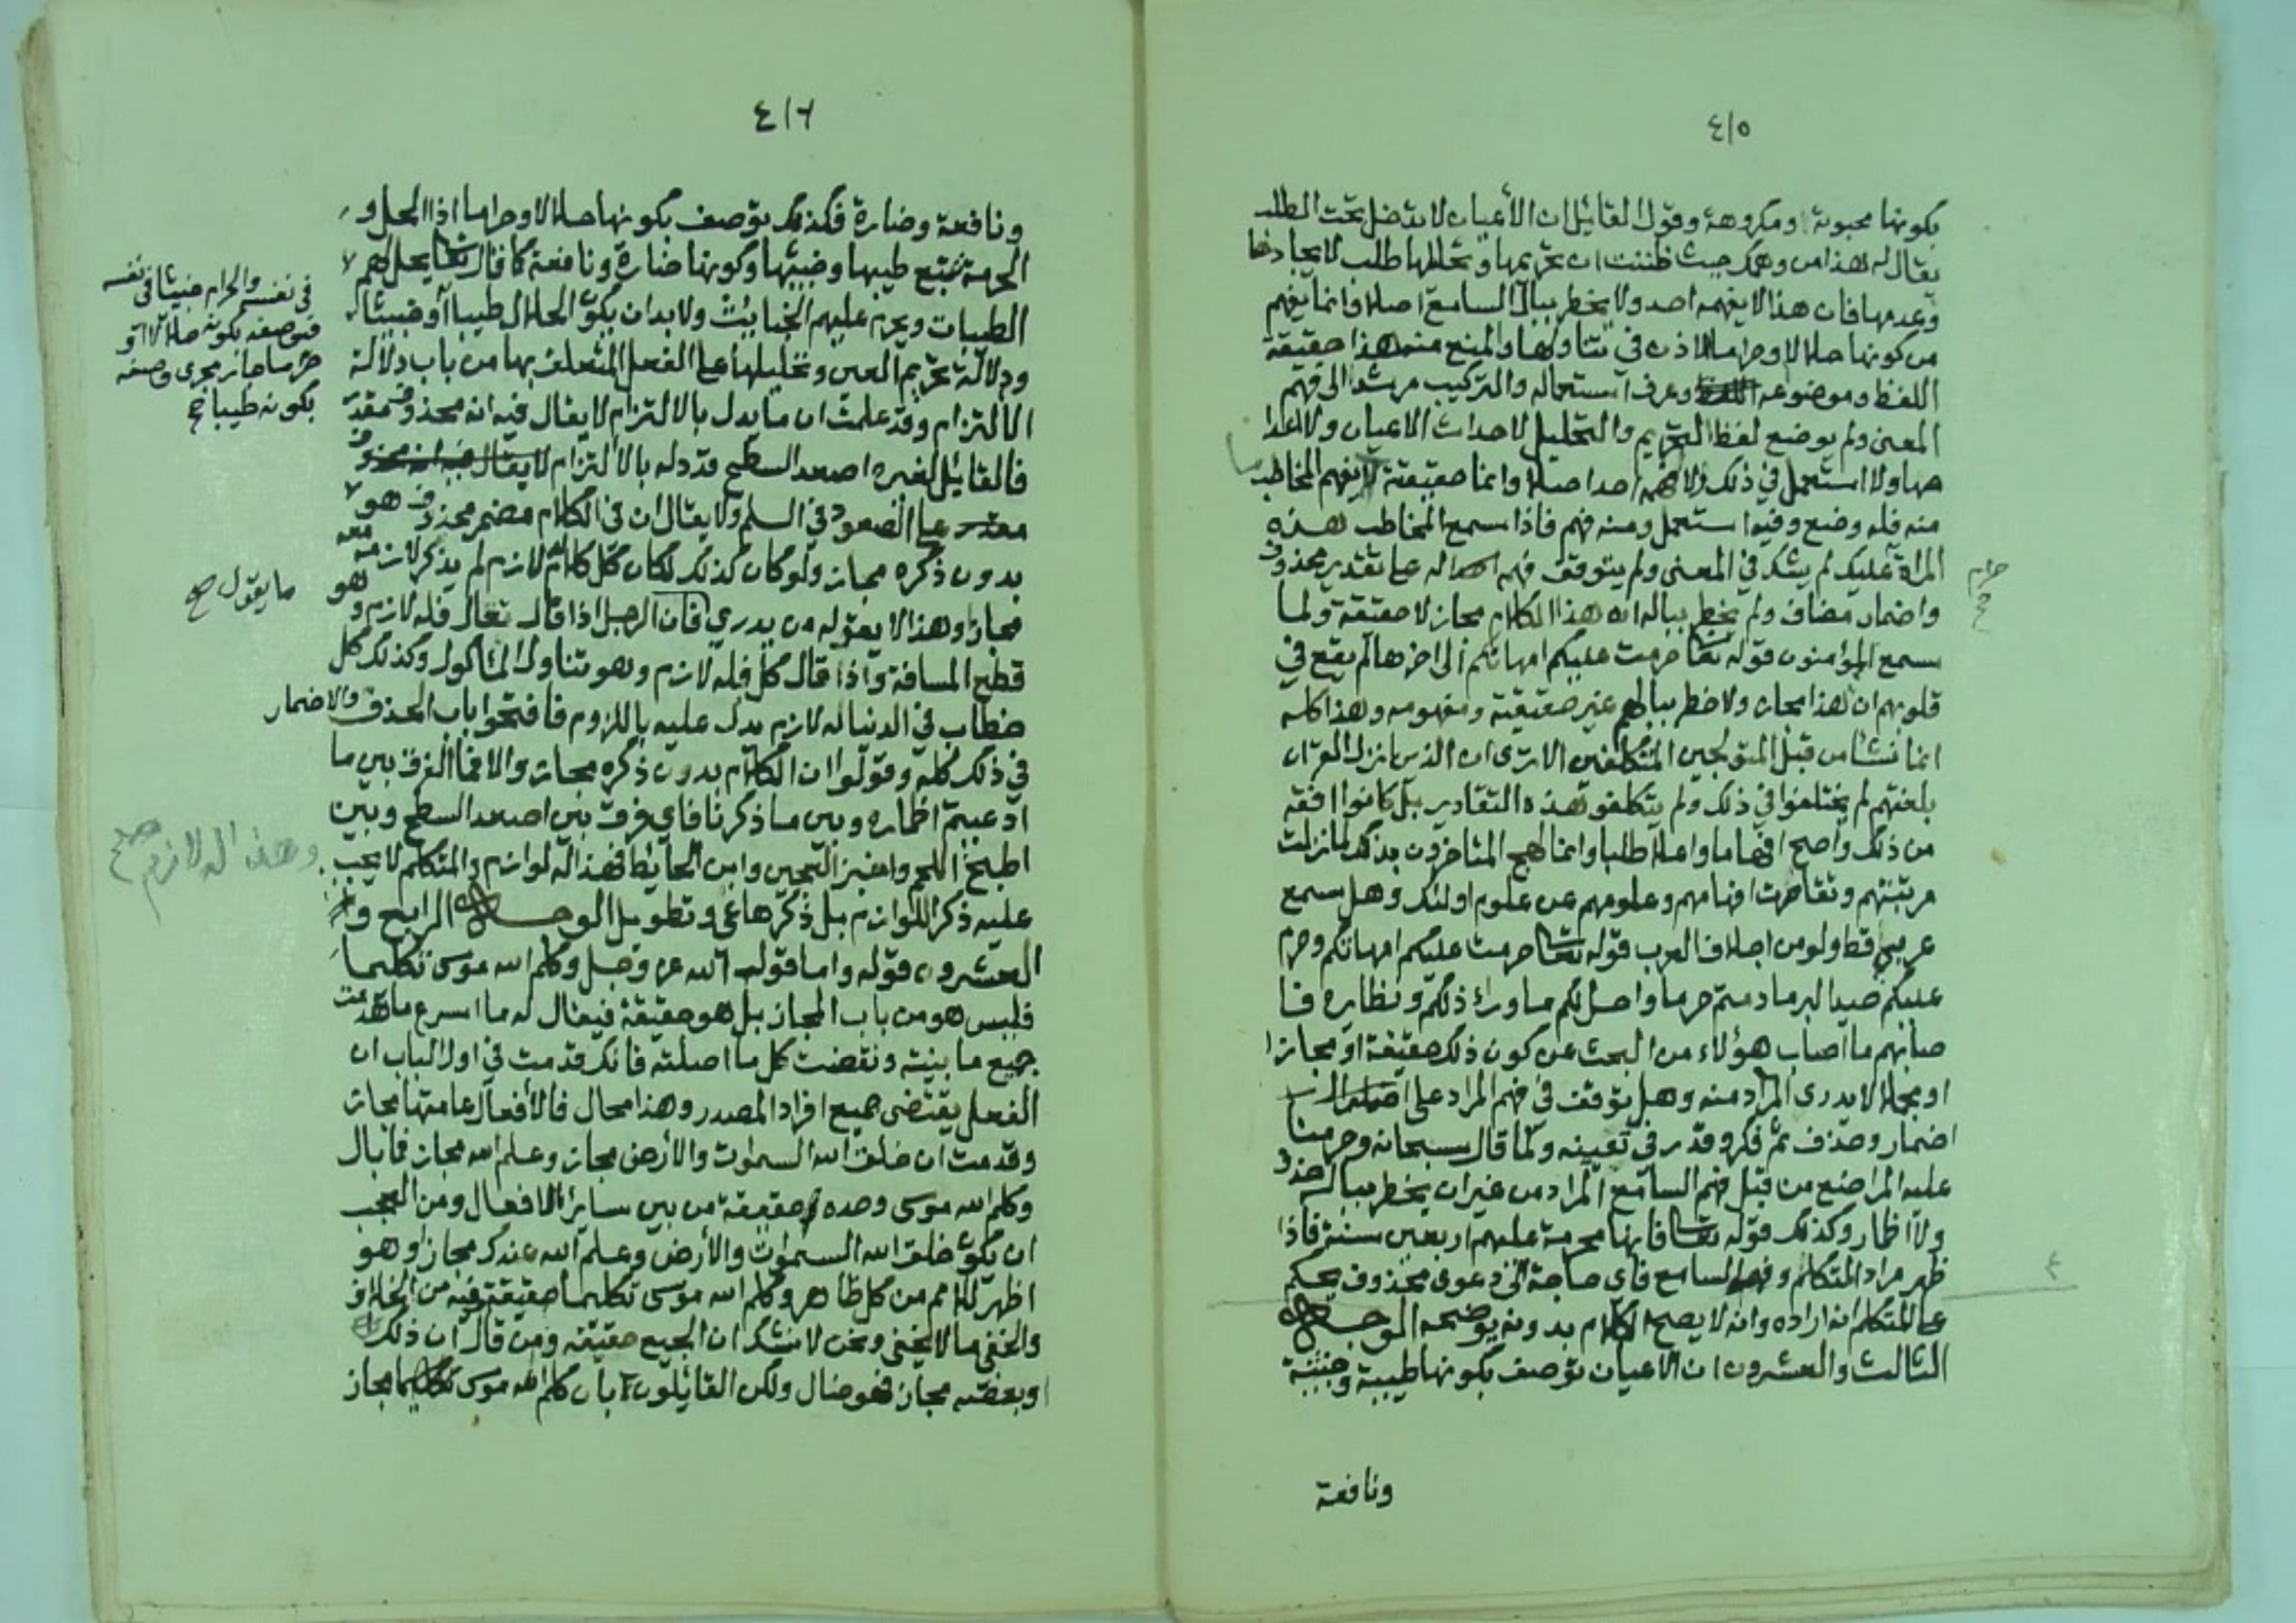 ٤١٥
بكونها محبوبة ومكروهة وقول القائل ان الأعيان لا تدخل تحت الطلب
يقال له هذا من وهمك حيث ظننت ان تحريمها وتحليلها طلب لايجادها
وعدمها فان هذا لا يفهمه احد ولا يخطر ببال السامع اصلا وانما يفهم
من كونها حلالا وحراما الاذن في تناولها والمنع منه هذا حقيقة
اللفظ وموضوعه وعرف استعماله والتركيب مرشد الى فهم
المعنى ولم يوضع لفظ التحريم والتحليل لاحداث الاعيان ولا اعدا
مها ولا استعمل في ذلك ولا فهمه احد اصلا وانما حقيقته ما يفهم المخاطب
منه فله وضع وفيه استعمل ومنه فهم فاذا سمع المخاطب هذه
المراة عليك لم يشك في المعنى ولم يتوقف فهمه له على تقدير محذوف
حرام صح
واضمار مضاف ولم يخطر بباله ان هذا الكلام مجاز لا حقيقة ولما
سمع المؤمنون قوله تعا حرمت عليكم امهاتكم الى اخرها لم يقع في
قلوبهم ان هذا مجاز ولا خطر ببالهم غير حقيقته ومفهومه وهذا كله
انما نشأ من قبل المتولجين المتكلفين الا ترى ان الذين نزل القران
بلغتهم لم يختلفوا في ذلك ولم يتكلفو هذه التقادير بل كانوا افقه
من ذلك واصح افهاما واعلا طلبا وانما لهج المتاخرون بذلك لما نزلت
مرتبتهم وتقاصرت افهامهم وعلومهم عن علوم اولئك وهل سمع
عربي قط ولو من اجلاف العرب قوله تعا حرمت عليكم امهاتكم وحرم
عليكم صيد البر ما دمتم حرما واحل لكم ما وراء ذلكم ونظايره فا
صابهم ما اصاب هؤلاء من البحث عن كون ذلك حقيقة او مجازا
او مجملا لا يدرى المراد منه وهل توقف في فهم المراد على
اضمار وحذف ثم فكر وقدر في تعيينه ولما قال سبحانه وحرمنا
عليه المراضع من قبل فهم السامع المراد من غير ان يخطر بباله حذف
ولا اظمار وكذلك قوله تعا فانها محرمة عليهم اربعين سنة فاذا
ظهر مراد المتكلم وفهمه السامع فاي حاجة الى دعوى محذوف يحكم
على المتكلم انه اراده وانه لا يصح الكلام بدونه يوضحه الوجه
الثالث والعشرون ان الاعيان توصف بكونها طيبة وخبيثة
ونافعة
٤١٦
ونافعة وضارة فكذلك توصف بكونها حلالا وحراما اذ الحل و
الحرمة تتبع طيبها وخبيثها وكونها ضارة ونافعة كما قال تعا يحل لهم
الطيبات ويحرم عليهم الخبايث ولا بد ان يكون الحلال طيبا أو خبيثا
في نفسه والحرام خبيثا في نفسه
فتوصفه بكونه حلالا او
حراما جاز مجرى وصفه
بكونه طيبا صح
ودلالة تحريم العين وتحليلها على الفعل المتعلق بها من باب دلالة
الالتزام وقد علمت ان ما يدل بالالتزام لا يقال فيه انه محذوف مقدر
فالقايل لغيره اصعد السطح قد دله بالالتزام لا يقال فيه انه محذوف
مقدر على الصعود في السلم ولا يقال ان في الكلام مضمر محذوف هو
بدون ذكره مجاز ولو كان كذلك لكان كل كلام له لازم لم يذكر لازمه معه
مجازا وهذا لا يقوله من يدري فان الرجل اذا قال تعال فله لازم وهو
ما يقول صح
قطع المسافة واذا قال كل فله لازم وهو تناول المأكول وكذلك كل
خطاب في الدنيا له لازم يدل عليه باللزوم فافتحوا باب الحذف والاضمار
في ذلك كله وقولوا ان الكلام بدون ذكره مجاز والا فما الفرق بين ما
ادعيتم اظماره وبين ما ذكرنا فاي فرق بين اصعد السطح وبين
اطبخ اللحم واخبز العجين وابن الحايط فهذا له لوازم والمتكلم لا يجب
وهذا له لازم صح
عليه ذكر اللوازم بل ذكرها عي وتطويل الوجه الرابع و
العشرون قوله واما قوله الله عز وجل وكلم الله موسى تكليما
فليس هو من باب المجاز بل هو حقيقة فيقال له ما اسرع ما هدمت
جميع ما بنيته ونقضت كل ما اصلته فانك قدمت في اول الباب ان
الفعل يقتضى جميع افراد المصدر وهذا محال فالأفعال عامتها مجاز
وقدمت ان خلق الله السموات والأرض مجاز وعلم الله مجاز فما بال
وكلم الله موسى وحده حقيقة من بين ساير الافعال ومن العجب
ان يكون خلق الله السموات والأرض وعلم الله عندك مجازا وهو
اظهر للامم من كل ظاهر وكلم الله موسى تكليما حقيقة وفيه من الخلاف
والخفى ما لا يخفى ونحن لا نشك ان الجميع حقيقة ومن قال ان ذلك
او بعضه مجاز فهو ضال ولكن القائلون بان كلم الله موسى تكليما مجاز